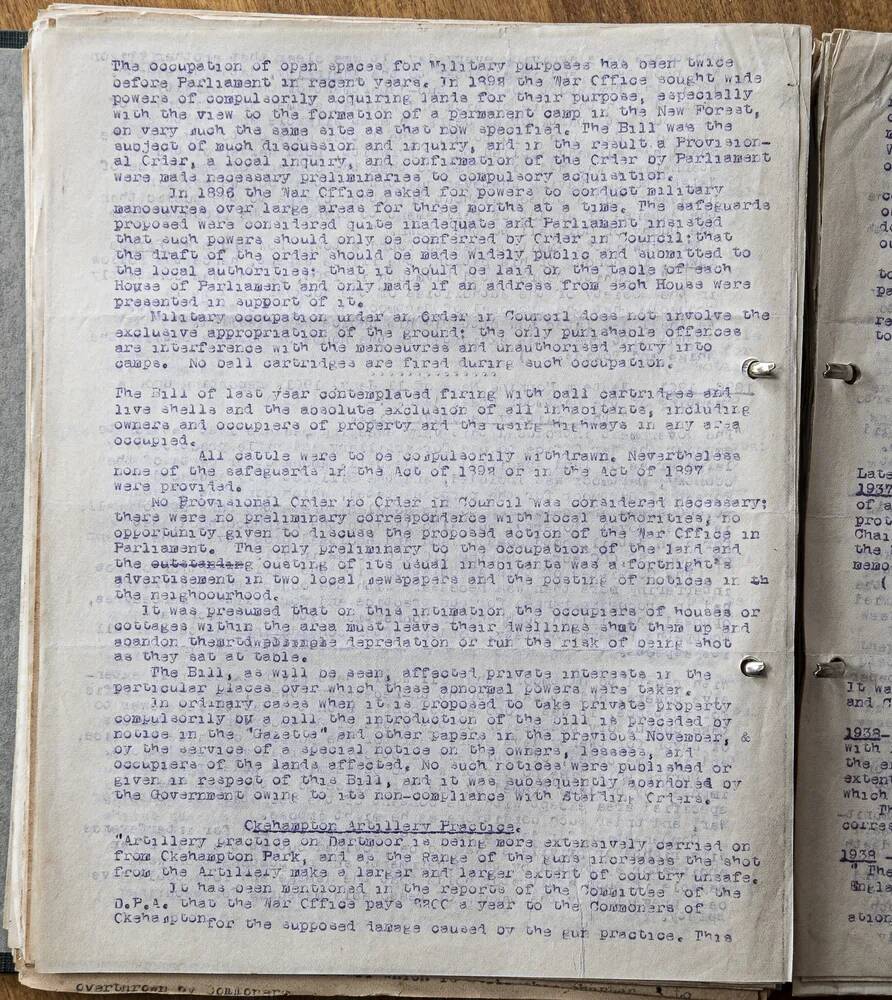 The occupation of open spaces for Military purposes has been twice
before Parliament in recent years. In 1898 the War Office sought wide
powers of compulsorily acquiring lands for their purpose, especially
with the view to the formation of a permanent camp in the New Forest,
on very much the same site as that now specified. The Bill was the
subject of much discussion and inquiry, and in the result a Provision-
al Order, a local inquiry, and confirmation of the Order by Parliament
were made necessary preliminaries to compulsory acquisition.
In 1896 the War Office asked for powers to conduct military
manoeuvres over large areas for three months at a time. The safeguards
proposed were considered quite inadequate and Parliament insisted
that such powers should only be conferred by Order in Council; that
the draft of the order should be made widely public and submitted to
the local authorities; that it should be laid on the table of each
House of Parliament and only made if an address from each House were
presented in support of it.
Military occupation under an Order in Council does not involve the
exclusive appropriation of the ground; the only punishable offences
are interference with the manoeuvres and unauthorised entry into
camps. No ball cartridges are fired during such occupation.
The Bill of last year contemplated firing with ball cartridges and
live shells and the absolute exclusion of all inhabitants, including
owners and occupiers of property and the using highways in any area
occupied.
All cattle were to be compulsorily withdrawn. Nevertheless
none of the safeguards in the Act of 1898 or in the Act of 1897
were provided.
No Provisional Order no Order in Council was considered necessary;
there were no preliminary correspondence with local authorities, no
opportunity given to discuss the proposed action of the War Office in
Parliament. The only preliminary to the occupation of the land and
the outstanding ousting of its usual inhabitants was a fortnight's
advertisement in two local newspapers and the posting of notices in th
the neighbourhood.
It was presumed that on this intimation the occupiers of houses or
cottages within the area must leave their dwellings shut them up and
abandon them depredation or run the risk of being shot
as they sat at table.
The Bill, as will be seen, affected private interests in the
particular places over which these abnormal powers were taken.
In ordinary cases when it is proposed to take private property
compulsorily by a bill the introduction of the bill is preceded by
notice in the "Gazette" and other papers in the previous November, &
by the service of a special notice on the owners, lessees, and
occupiers of the lands affected. No such notices were published or
given in respect of this Bill, and it was subsequently abandoned by
the Government owing to its non-compliance with Standing Orders.
Okehampton Artillery Practice.
"Artillery practice on Dartmoor is being more extensively carried on
from Okehampton Park, and as the Range of the guns increases the shot
from the Artillery make a larger and larger extent of country unsafe.
It has been mentioned in the reports of the Committee of the
D.P.A. that the War Office pays a year to the Commoners of
Okehampton for the supposed damage caused by the gun practice. This
overthrown by Commoners
Late
1937
of a
prov
Chai
the
memo
It wa
and C
1938-
with
the e
exten
which
Th
corres
1938
" The
Engla
ation